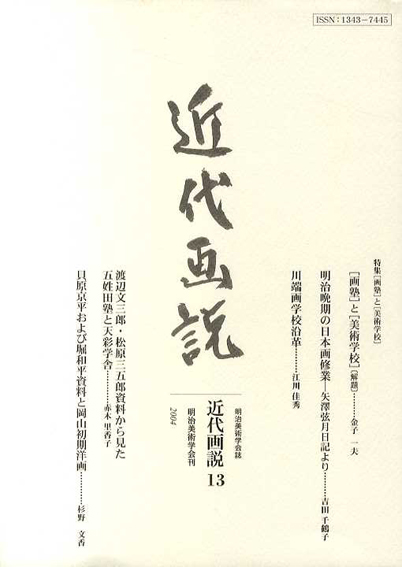 ISSN：1343−7445
特集［画塾］と［美術学校］
［画塾］と［美術学校］（解題）………金子　一夫
明治晩期の日本画修業―矢澤弦月日記より………吉田　千鶴子
川端画学校沿革………江川　佳秀
近代画説
明治美術学会誌
近代画説 13
明治美術学会刊
2004
渡辺文三郎・松原三五郎資料から見た
五姓田塾と天彩学舎………赤木　里香子
貝原京平および堀和平資料と岡山初期洋画………杉野　文香